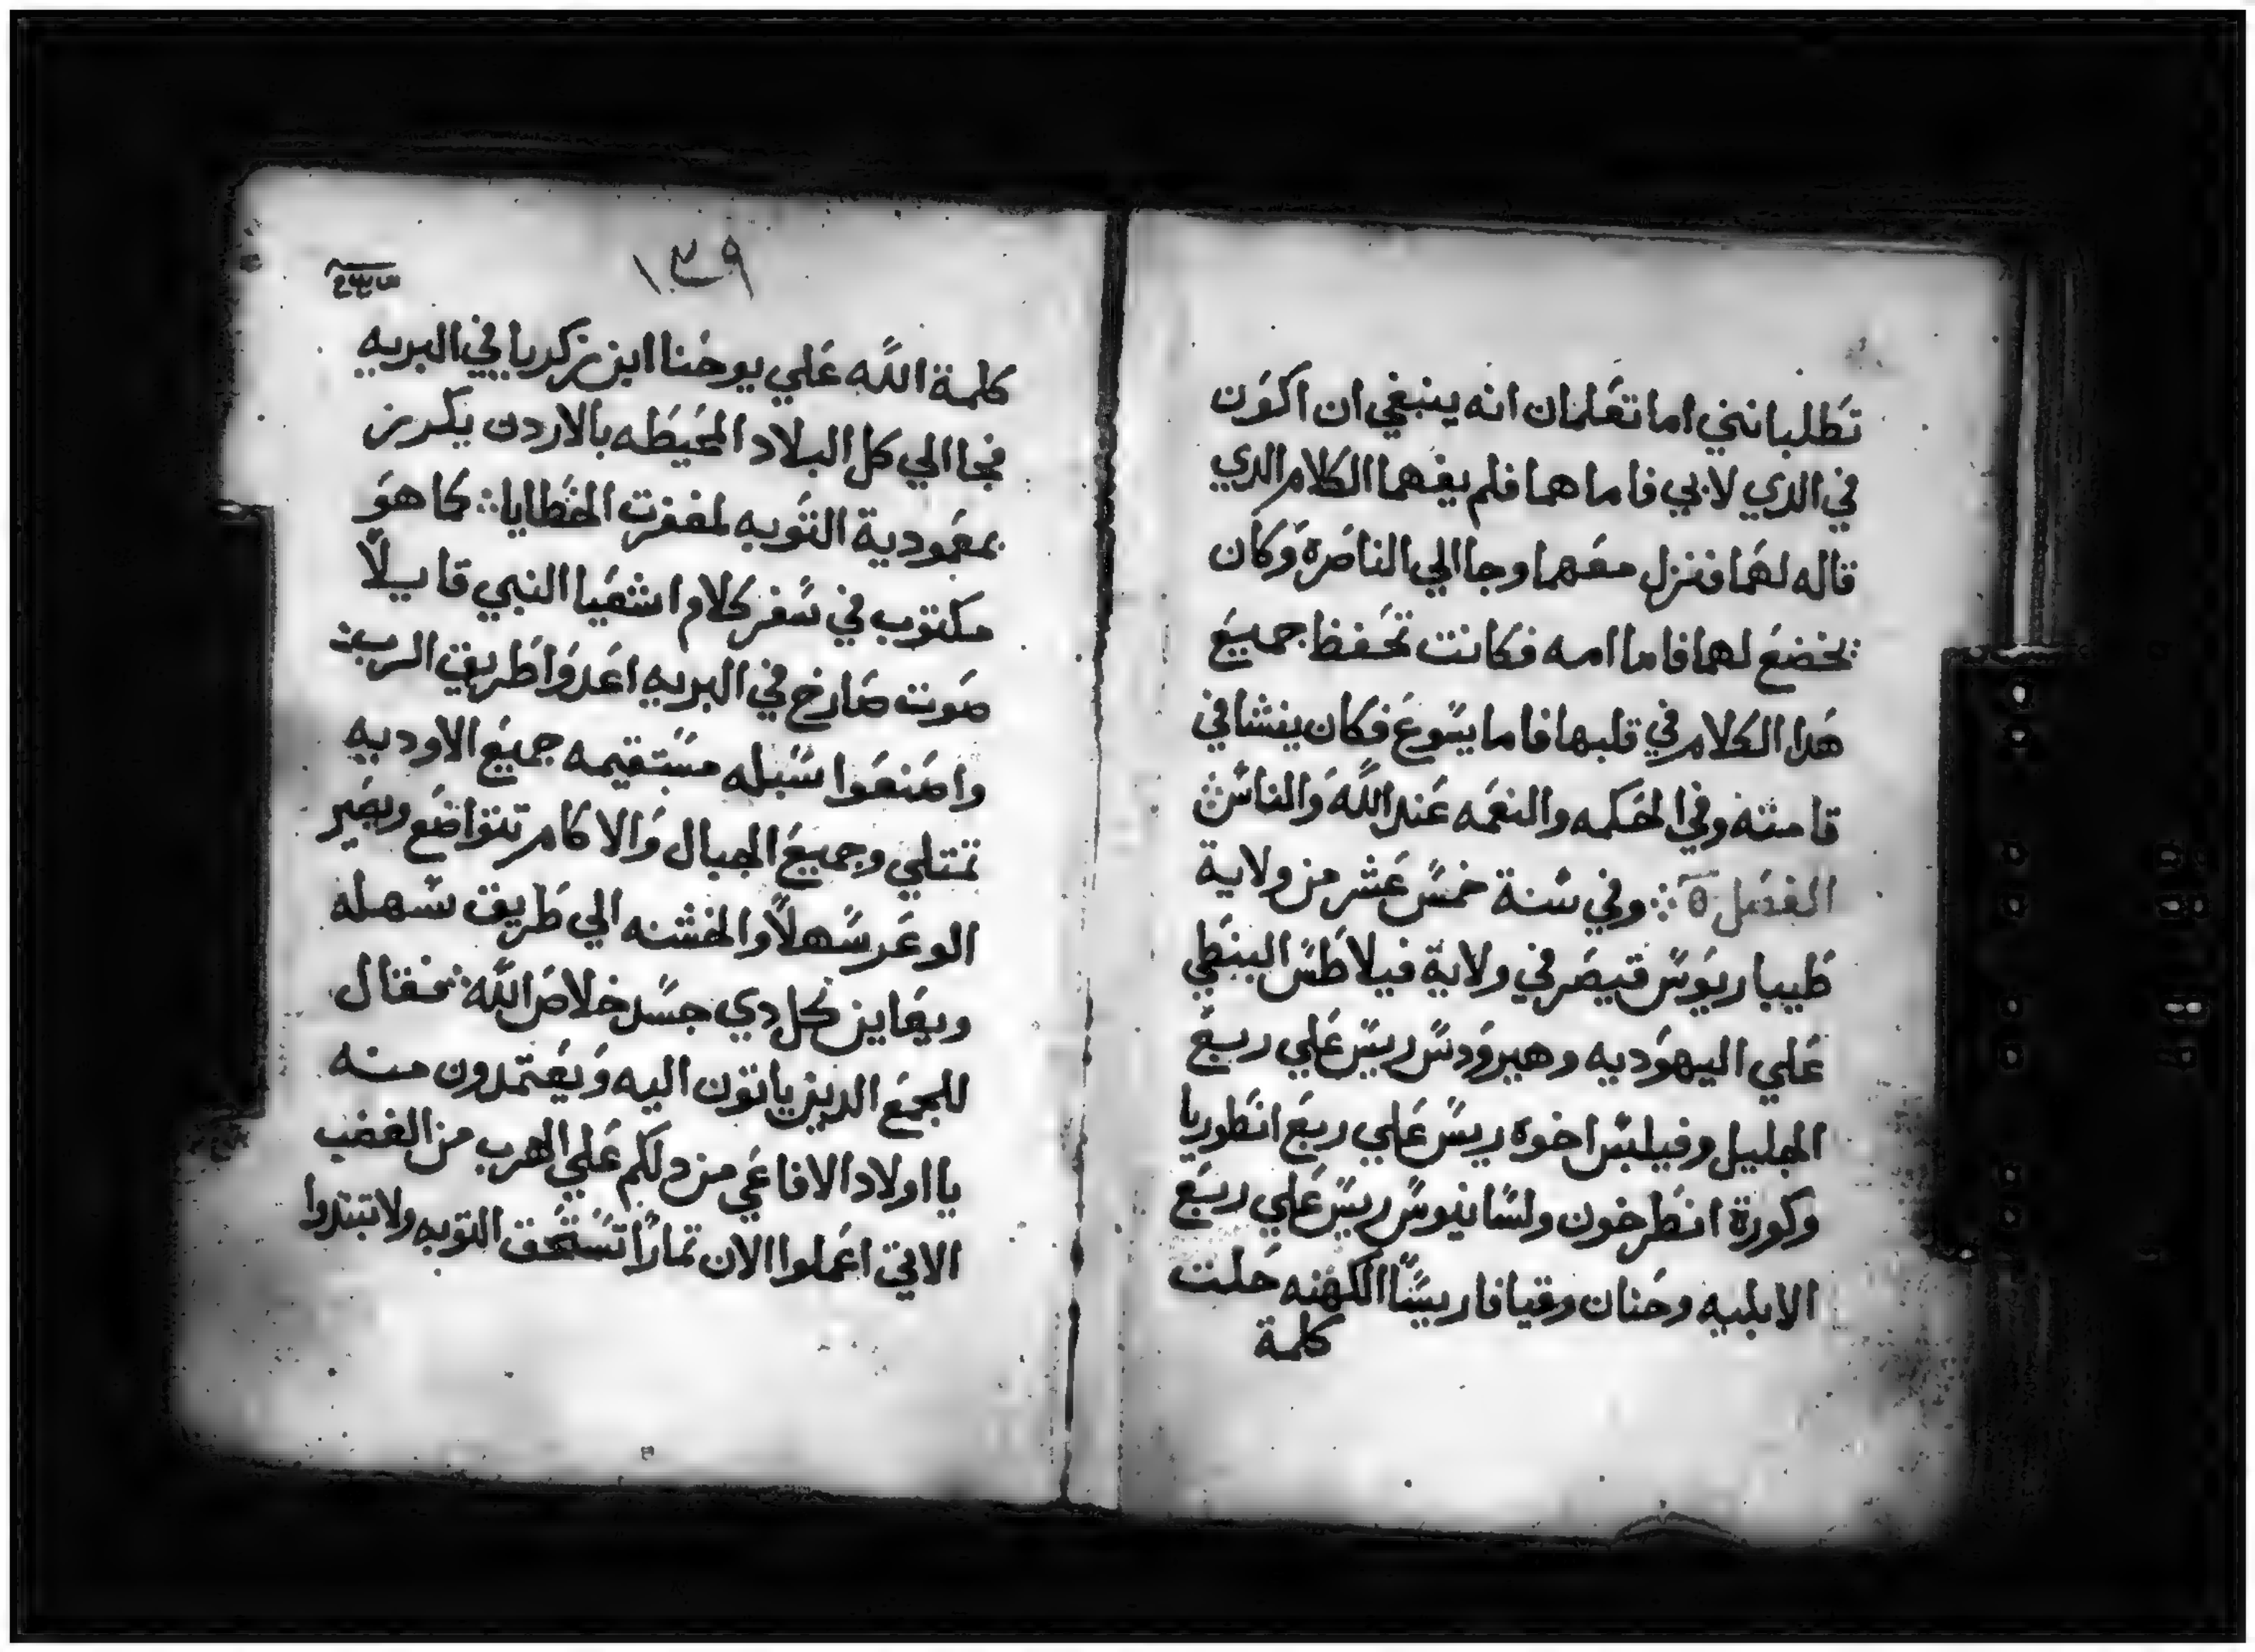 تطلبانني اما تعلمان انه ينبغي ان اكون
في الدي لابي فاما هما فلم يفهما الكلام الدي
قاله لهما فنزل معهما وجا الي الناصره وكان
يخضع لهما فاما امه فكانت تحفظ جميع
هدا الكلام في قلبها فاما يسوع فكان ينشا في
قامته وفي الحكمه والنعمه عند الله والناس
الفصل ٥ وفي سنة خمس عشر من ولاية
طيباريوس قيصر في ولاية فيلاطس البنطي
علي اليهوديه وهيرودس ريس علي ربع
الجليل وفيلبس اخوه ريس علي ربع انطوريا
وكورة انطرخون ولسانيوس ريس علي ربع
الابلييه وحنان وقيافا ريسا الكهنه حلت
كلمة
١٣٩
كلمة الله علي يوحنا ابن زكريا في البريه
فجا الي كل البلاد المحيطه بالاردن يكرز
بمعمودية التوبه لمغفرت الخطايا كما هو
مكتوب في سفر كلام اشعيا النبي قايلاً
صوت صارخ في البريه اعدوا طريق الرب
واصنعوا سبله مستقيمه جميع الاوديه
تمتلي وجميع الجبال والاكام تتواضع ويصير
الوعر سهلاً والخشنه الي طريق سهله
ويعاين كل دي جسد خلاص الله فقال
للجمع الدين ياتون اليه ويعتمدون منه
يا اولاد الافاعي من دلكم علي الهرب من الغضب
الاتي اعملوا الان تماراً تستحق التوبه ولا تبتدوا